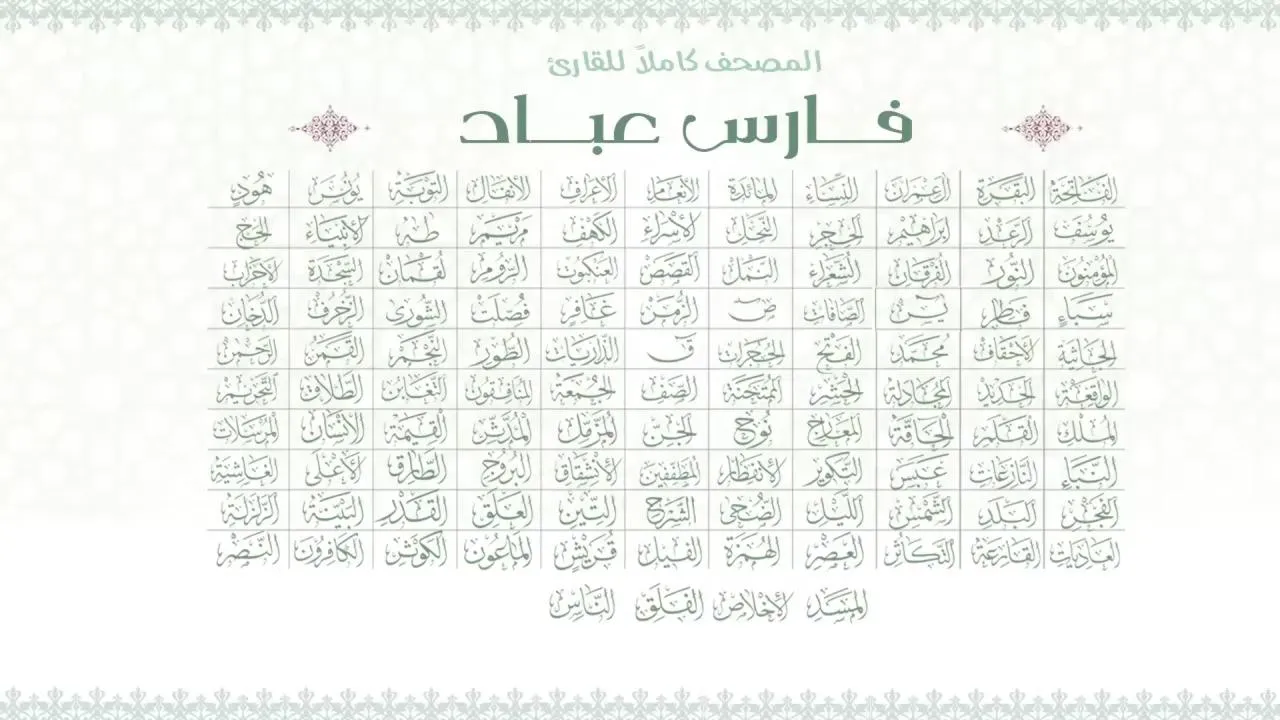 المصحف كاملاً للقارئ
فـــارس عبـــاد
الفَاتِحَة البَقَرَة آلعِمرَان النِّسَاء المَائدَة الأنعَام الأعرَاف الأنفَال التوبَة يُونُس هُود
يُوسُف الرَعد إبراهِيم الحِجر النَّحل الإسْرَاء الكَهف مَريَم طه الأنبيَاء الحَج
المؤمنُون النُّور الفُرقان الشُّعَرَاء النَّمل القَصَص العَنكبوت الرُّوم لُقمَان السَّجدَة الأحزَاب
سَبَإ فَاطِر يس الصَّافات ص الزُّمَر غَافِر فُصِّلَت الشّورى الزّخرُف الدّخَان
الجَاثيَة الأحقَاف محَمد الفَتْح الحجرَات ق الذّاريَات الطُّور النَّجْم القَمَر الرَّحمن
الوَاقِعَة الحَديد المجَادلة الحَشر المُمتَحنَة الصَّف الجُمعَة المنَافِقون التغَابُن الطّلَاق التّحْريم
المُلك القَلَم الحَاقَّة المعَارِج نُوح الجِنّ المُزّمّل المُدّثر القيَمَة الإنسَان المُرسَلات
النَّبَإ النّازعَات عَبَس التّكوير الانفِطار المطفّفِين الانشِقَاق البُروج الطّارِق الأعلى الغَاشِية
الفَجْر البَلَد الشَّمْس اللّيْل الضّحى الشَّرح التّين العَلَق القَدْر البَيّنَة الزلزَلة
العَاديَات القَارعَة التّكَاثُر العَصْر الهُمَزة الفِيل قُرَيش المَاعُون الكَوثر الكَافِرون النّصْر
المَسَد الإخْلاص الفَلَق النَّاس